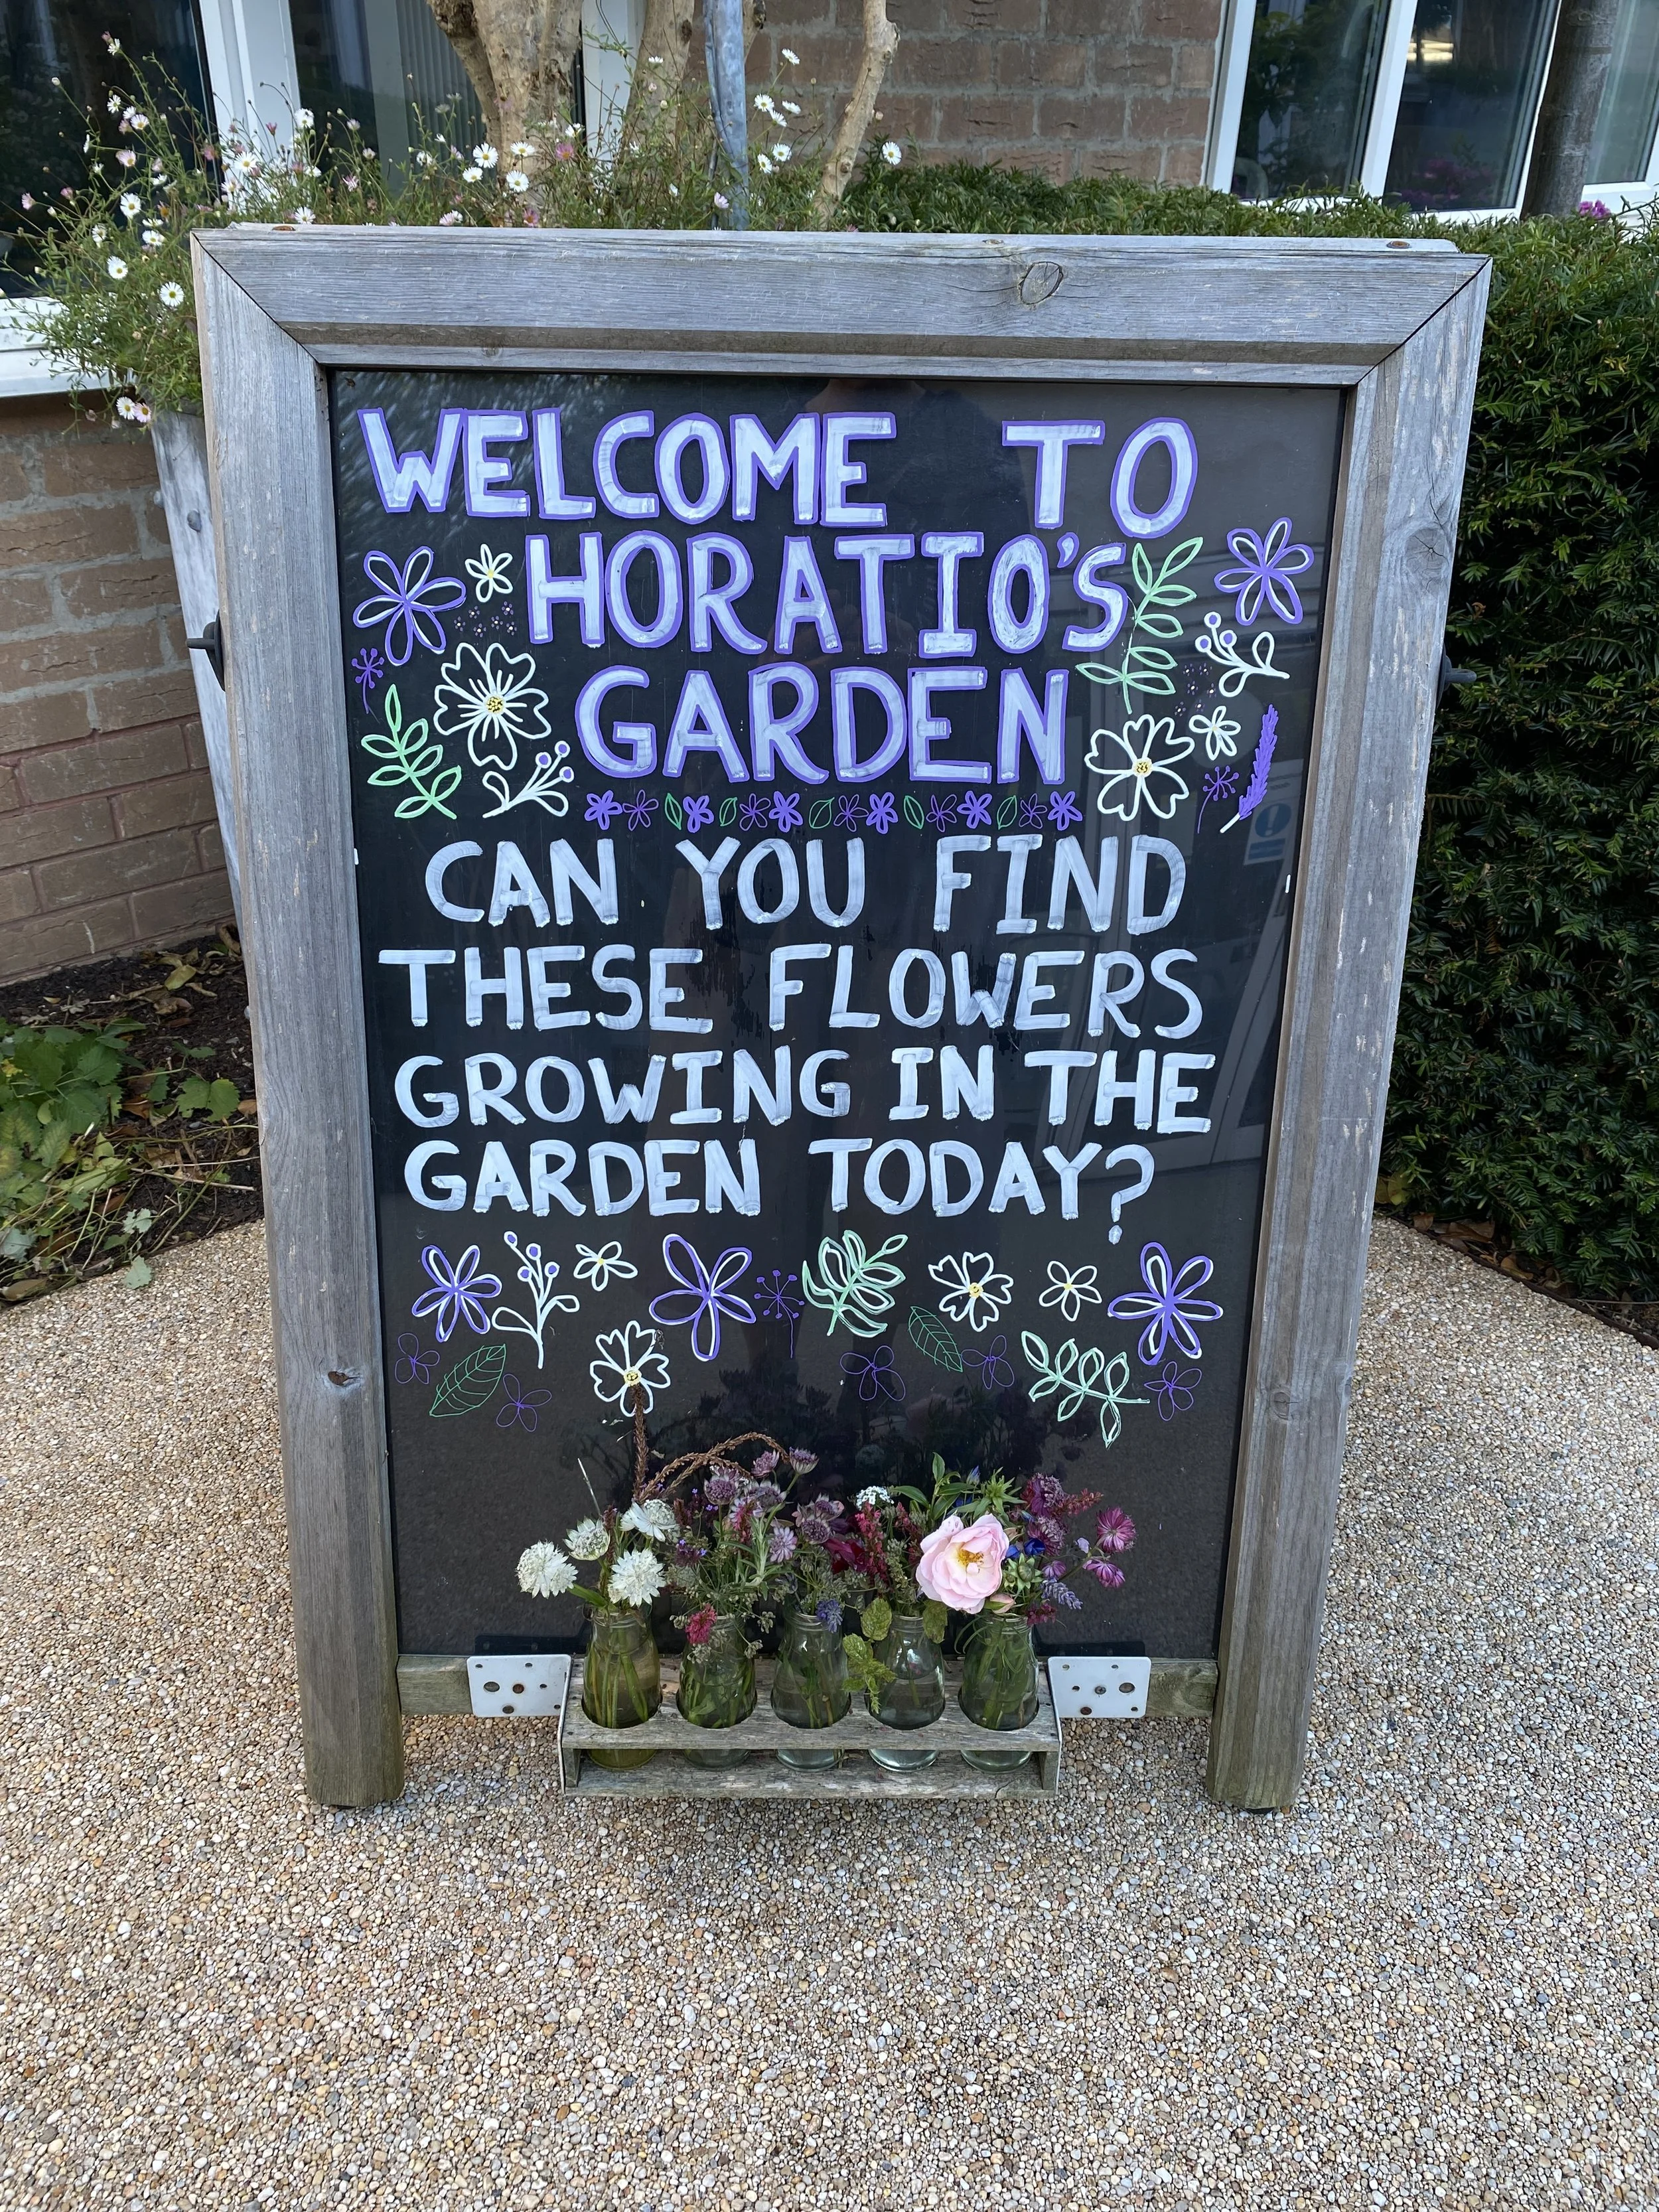 WELCOME TO
HORATIO'S
GARDEN
CAN YOU FIND
THESE FLOWERS
GROWING IN THE
GARDEN TODAY?